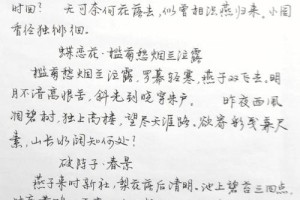 时回？ 无可奈何花落去，似曾相识燕归来。小园
香径独徘徊。
蝶恋花·槛菊愁烟兰泣露
槛菊愁烟兰泣露，罗幕轻寒，燕子双飞去。明
月不谙离恨苦，斜光到晓穿朱户。 昨夜西风
凋碧树，独上高楼，望尽天涯路。欲寄彩笺兼尺
素，山长水阔知何处？
破阵子·春景
燕子来时新社，梨花落后清明。池上碧苔三四点，